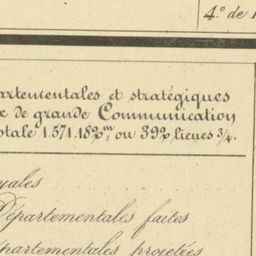 4.º de
artementales et stratégiques
de grande Communication
tale 1.571.182.m, ou 392 lieues 3/4.
yales
Départementales faites
partementales projetées